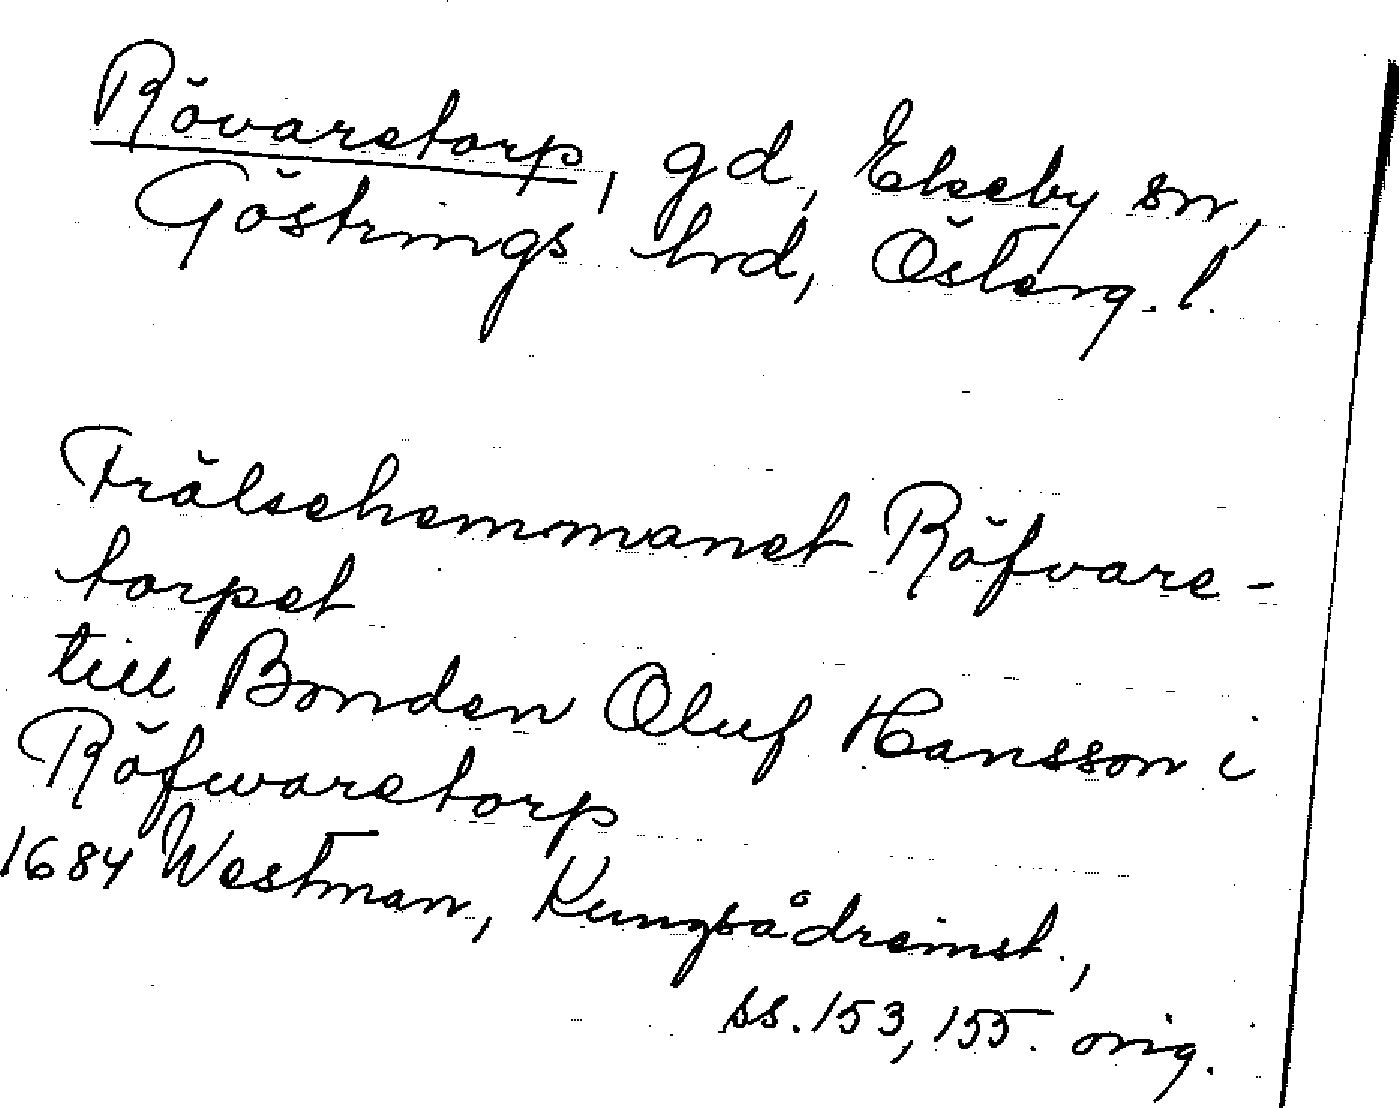 Rövaretorp, gd, Ekeby sn,
Göstrings hrd, Österg. l.
Frälsehemmanet Röfvare-
torpet
till Bonden Oluf Hansson i
Röfwaretorp
1684 Westman, Kungsådreinst.,
ss. 153, 155. orig.